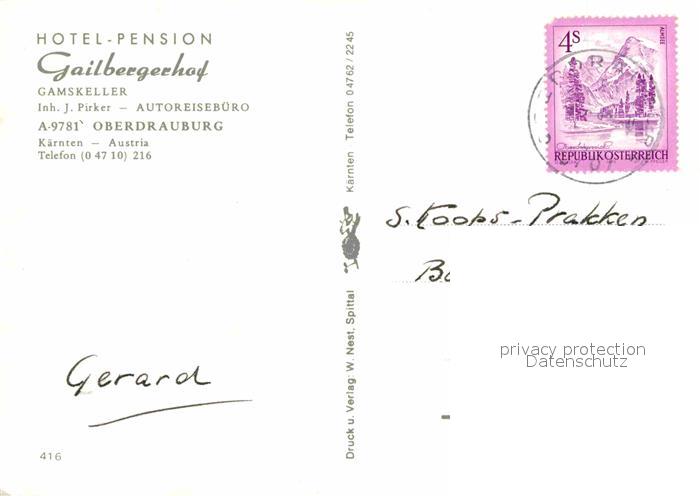 HOTEL-PENSION
Gailbergerhof
GAMSKELLER
Inh. J. Pirker — AUTOREISEBÜRO
A-9781 OBERDRAUBURG
Kärnten — Austria
Telefon (0 47 10) 216
Gerard
416
Druck u. Verlag: W. Nest, Spittal
Kärnten Telefon 0 47 62 / 22 45
4S
ALMSEE
REPUBLIK ÖSTERREICH
S. Koops-Prakken
privacy protection
Datenschutz